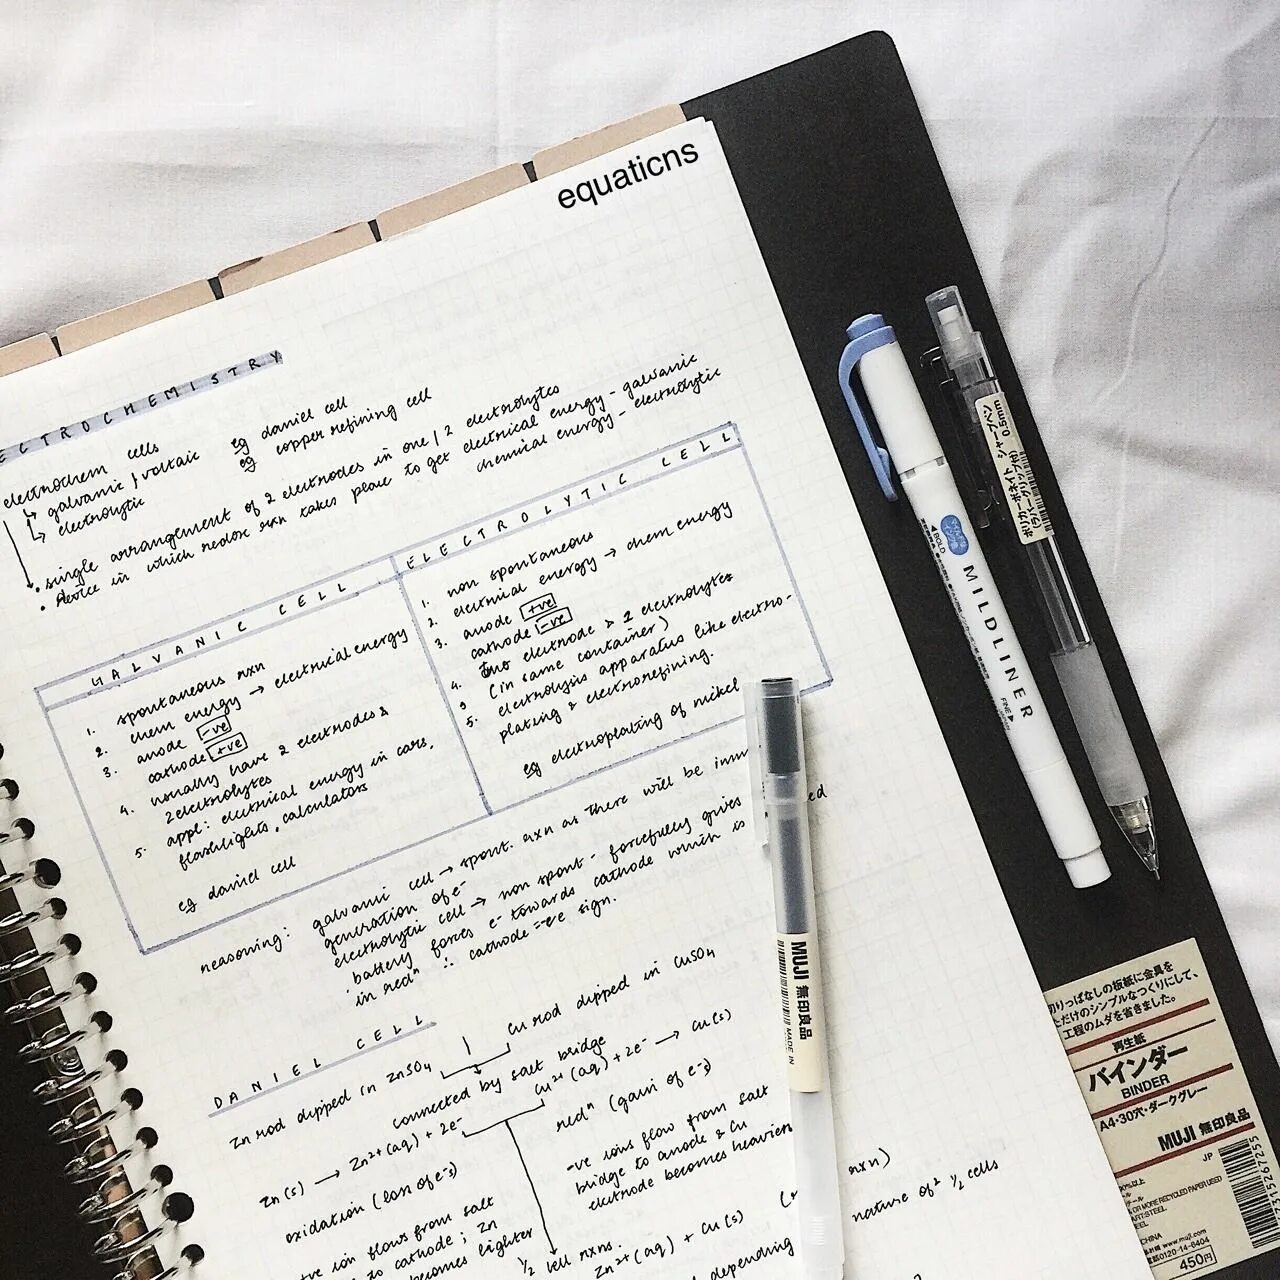 equaticns
ECTROCHEMISTRY
electrochem cells
↳ galvanic / voltaic eg daniel cell
↳ electrolytic eg copper refining cell
• single arrangement of 2 electrodes in one / 2 electrolytes
• device in which redox rxn takes place to get electrical energy - galvanic
chemical energy - electrolytic
GALVANIC CELL
1. spontaneous rxn
2. chem energy → electrical energy
3. anode -ve
cathode +ve
4. usually have 2 electrodes &
2 electrolytes
5. appl: electrical energy in cars,
flashlights, calculators
eg daniel cell
ELECTROLYTIC CELL
1. non spontaneous
2. electrical energy → chem energy
3. anode +ve
cathode -ve
4. two electrode > 1 electrolytes
(in same container)
5. electrolysis apparatus like electro-
plating & electrorefining.
eg electroplating of nickel
reasoning: galvanic cell → spont. rxn as there will be imm
generation of e-
electrolytic cell → non spont - forcefully gives
battery forces e- towards cathode which is
in redⁿ ∴ cathode = -ve sign.
DANIEL CELL
Zn rod dipped in ZnSO4
Cu rod dipped in CuSO4
connected by salt bridge
Zn(s) → Zn2+(aq) + 2e-
Cu2+(aq) + 2e- → Cu(s)
oxidation (loss of e-s)
redⁿ (gain of e-s)
+ve ion flows from salt
to cathode ; Zn
becomes lighter
-ve ions flow from salt
bridge to anode & Cu
electrode becomes heavier
½ cell rxns.
Zn2+(aq) + Cu(s)
rxn)
depending
nature of 2 ½ cells
MUJI 無印良品
MADE IN
MILDLINER
BOLD
FINE
シャープペン
0.5mm
ポリカーボネイト
(ラバーグリップ付)
切りっぱなしの板紙に金具を
ただけのシンプルなつくりにして、
工程のムダを省きました。
再生紙
バインダー
BINDER
A4・30穴・ダークグレー
MUJI 無印良品
JP
OR MORE RECYCLED PAPER USED
www.muji.com
0120-14-6404
450円